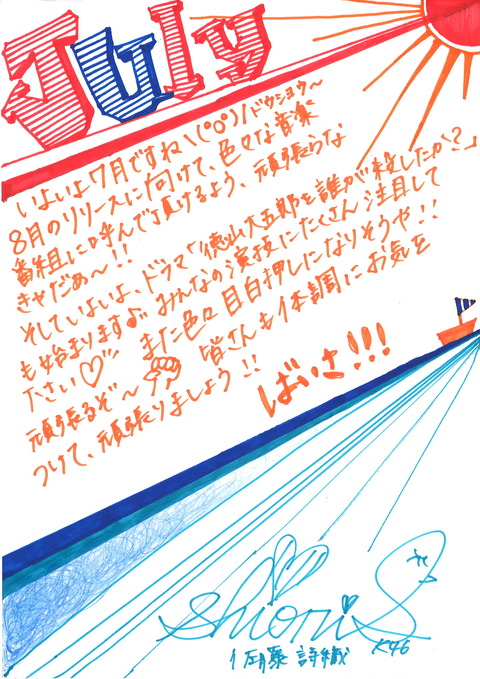 July
いよいよ7月ですね\(°o°)/ドウショウ〜
8月のリリースに向けて、色々な音楽
番組に呼んで頂けるよう、頑張らな
きゃだぁ〜!!
そしていよいよ、ドラマ「徳山大五郎を誰が殺したか?」
も始まります♪みんなの演技にたくさん注目して
下さい♡また色々目白押しになりそうや!!
頑張るぞ〜 皆さんも体調にお気を
つけて、頑張りましょう!!
ばいさ!!!
Shiori S
佐藤 詩織 K46